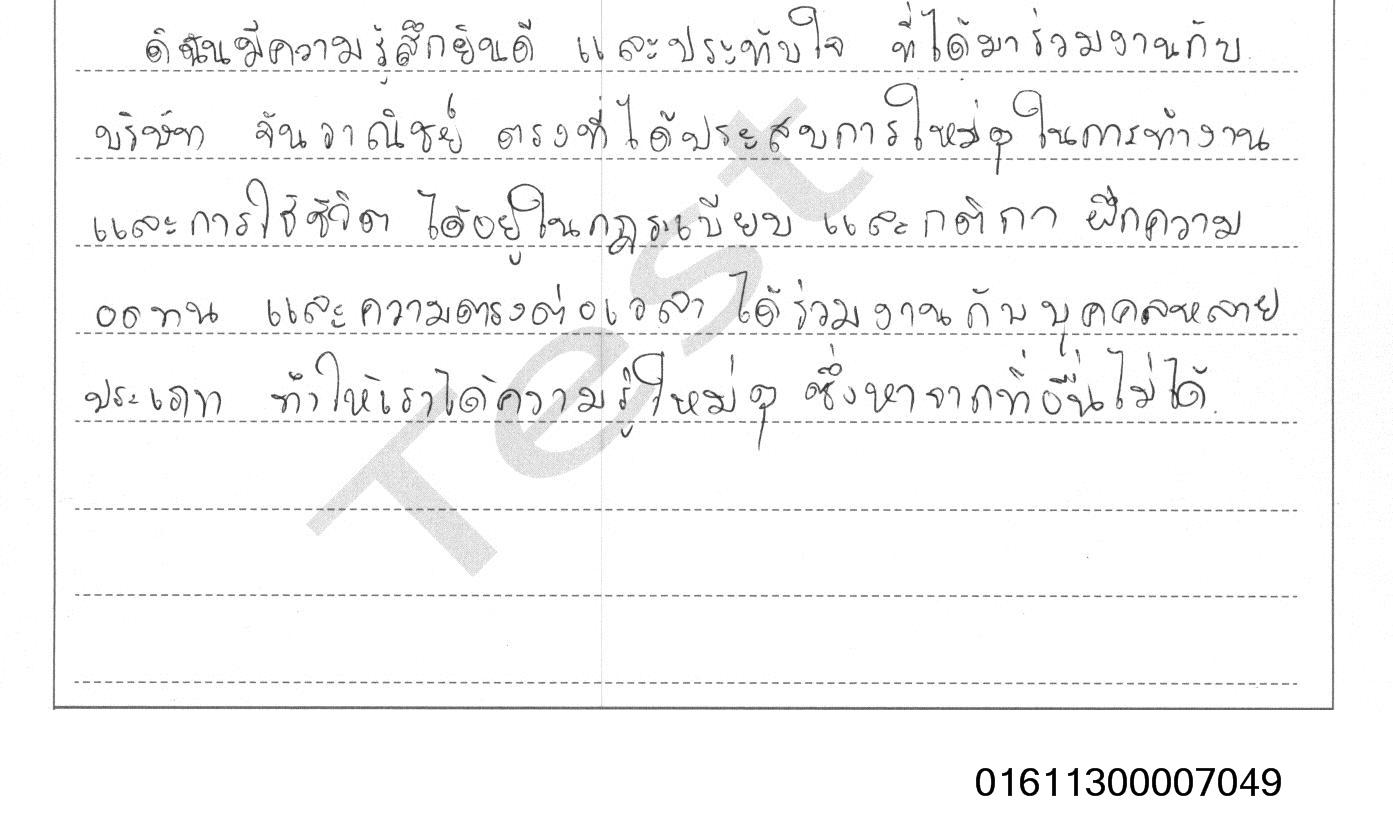 ดิฉันมีความรู้สึกยินดี และประทับใจ ที่ได้มาร่วมงานกับ
บริษัท จันวาณิชย์ ตรงที่ได้ประสบการใหม่ๆ ในการทำงาน
และการใช้ชีวิต ได้อยู่ในกฎระเบียบ และกติกา ฝึกความ
อดทน และความตรงต่อเวลา ได้ร่วมงานกับบุคคลหลาย
ประเภท ทำให้เราได้ความรู้ใหม่ๆ ซึ่งหาจากที่อื่นไม่ได้.
Test
01611300007049